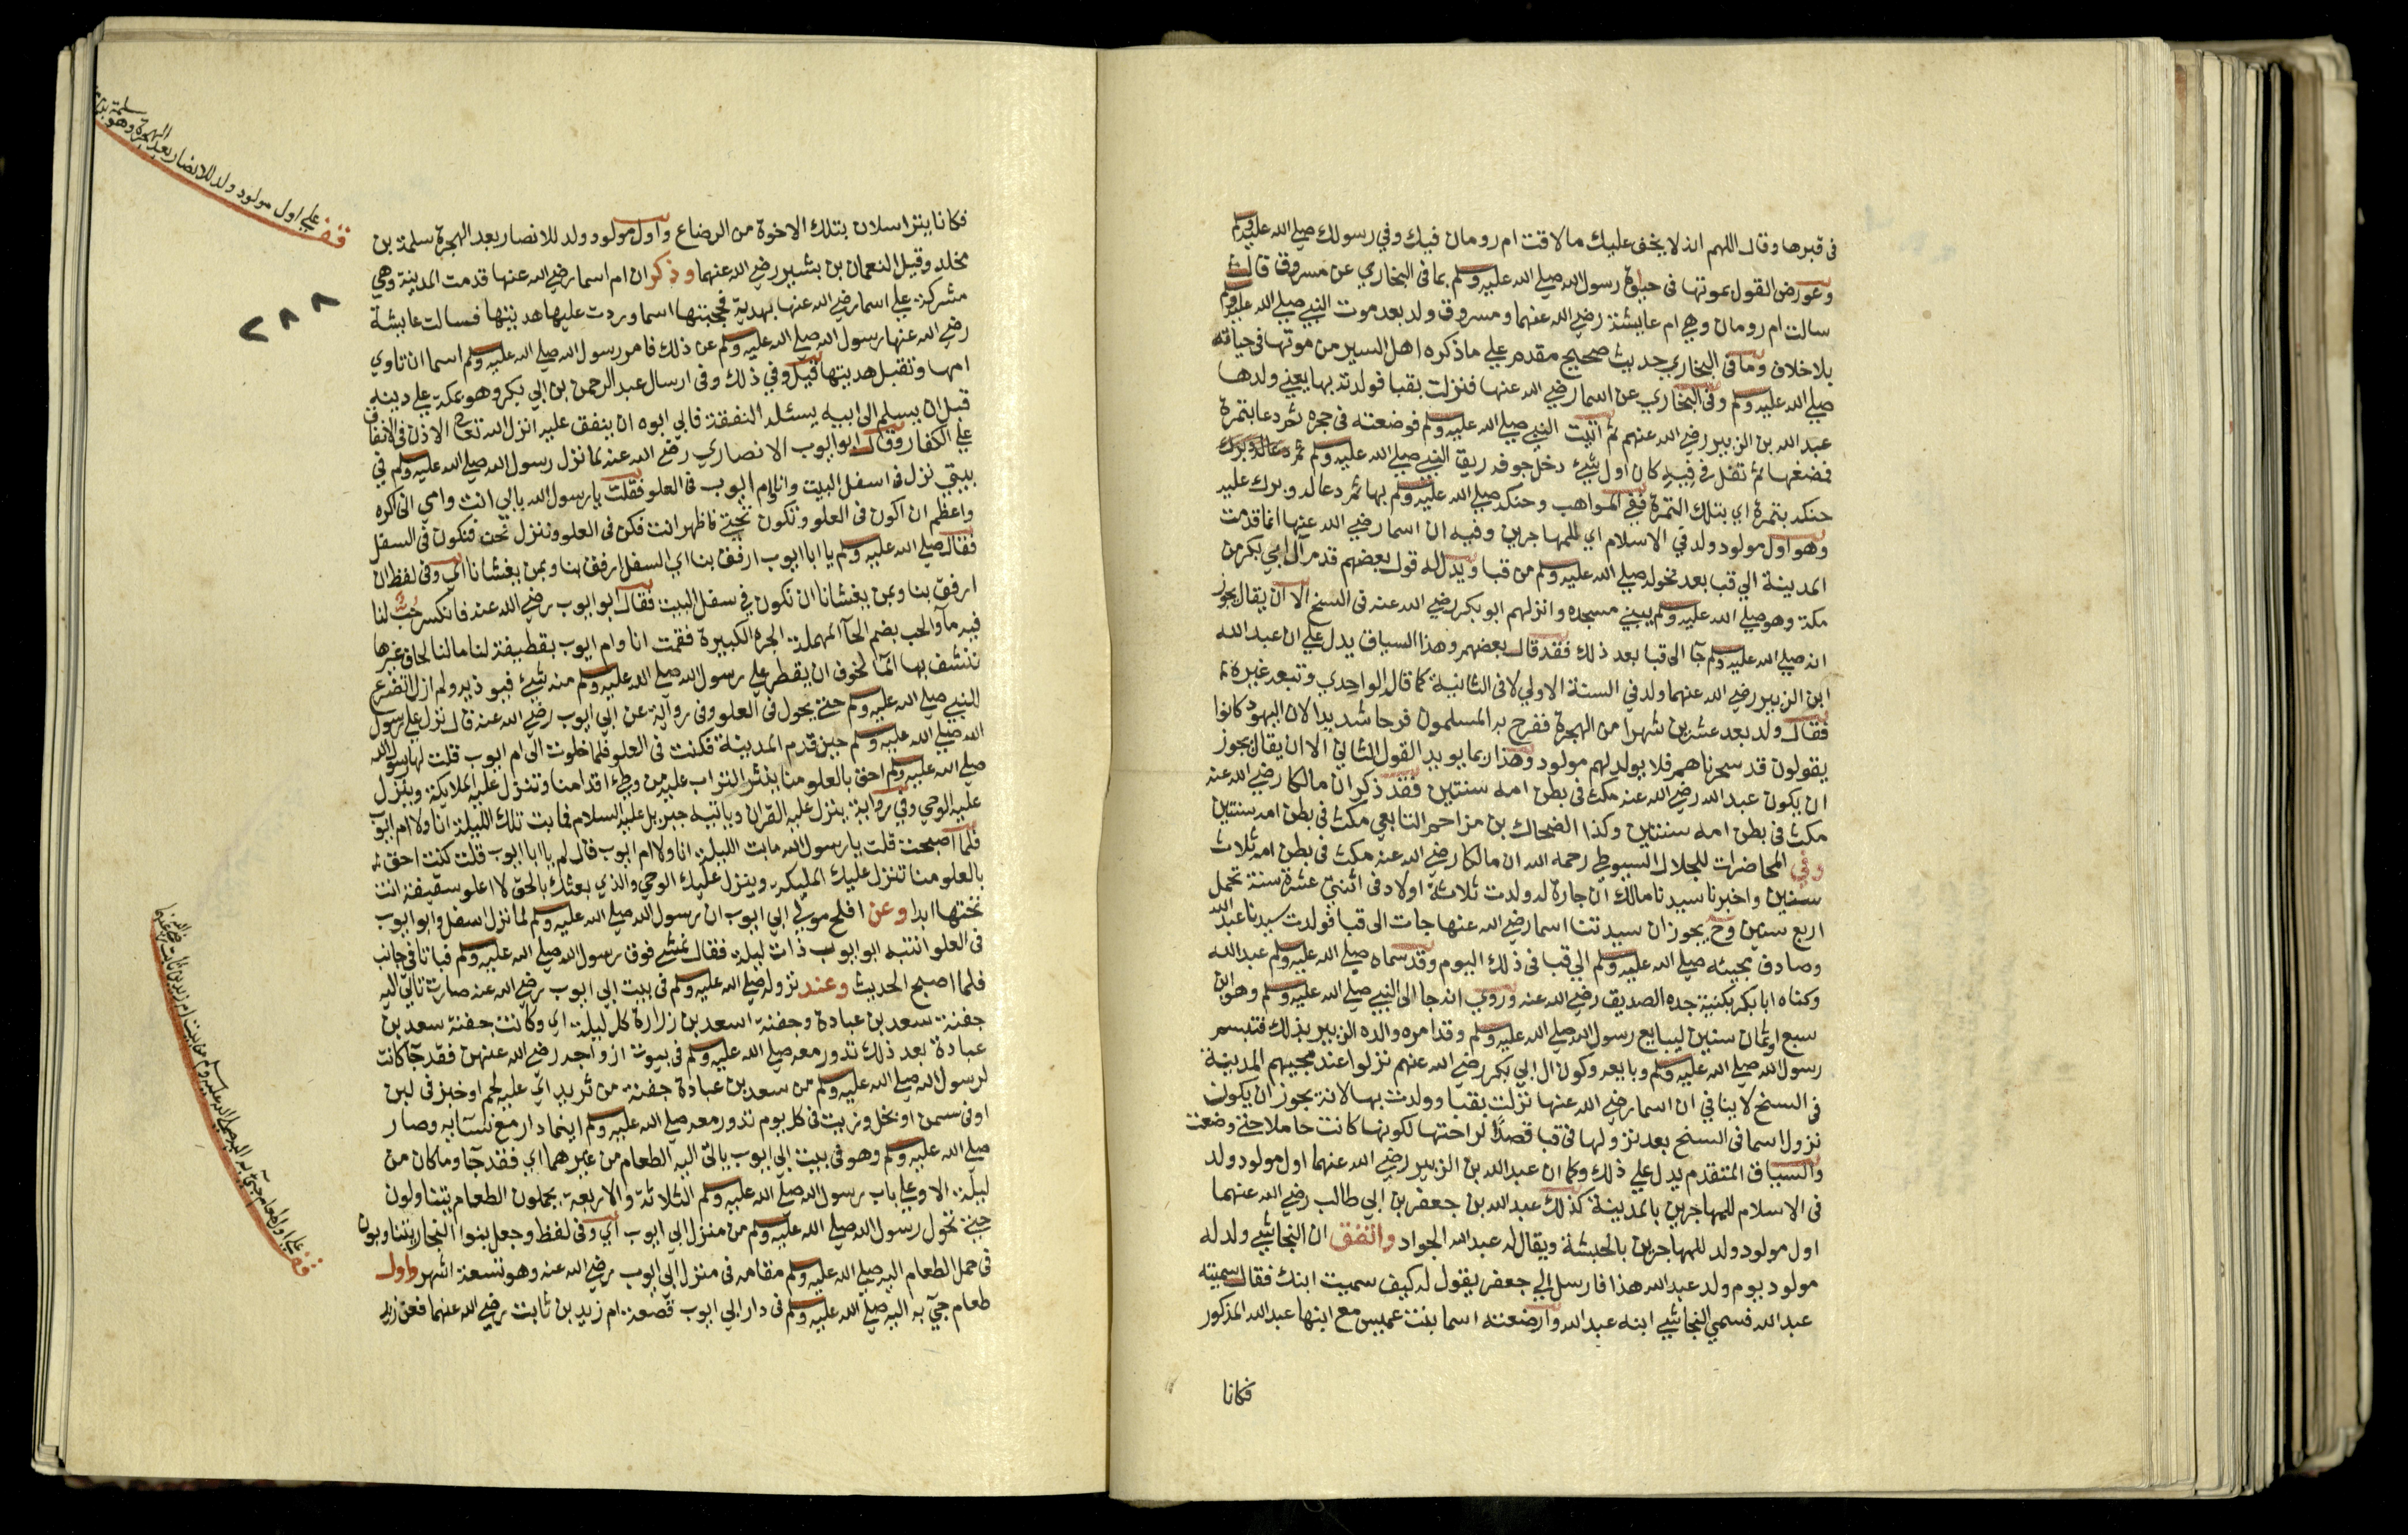 في قبرها وقال اللهم انه لا يخف عليك ما لاقت ام رومان فيك وفي رسولك صلي الله عليه وسلم
وعورض القول بموتها في حياة رسول الله صلي الله عليه وسلم بما في البخاري عن مسروق قال
سالت ام رومان وهي ام عايشة رضي الله عنهما ومسروق ولد بعد موت النبي صلي الله عليه وسلم
بلا خلاف وما في البخاري حديث صحيح مقدم علي ما ذكره اهل السير من موتها في حياته
صلي الله عليه وسلم وفي البخاري عن اسما رضي الله عنها فنزلت بقبا فولدته بها يعني ولدها
عبد الله بن الزبير رضي الله عنهم ثم اتيت النبي صلي الله عليه وسلم فوضعته في حجره ثم دعا بتمرة
فمضغها ثم تفل في فيه كان اول شيء دخل جوفه ريق النبي صلي الله عليه وسلم ثم دعا له وبرك
حنكه بتمرة اي بتلك التمرة ففي المواهب وحنكه صلي الله عليه وسلم بها ثم دعا له وبرك عليه
وهو اول مولود ولد في الاسلام اي للمهاجرين وفيه ان اسما رضي الله عنها انما قدمت
المدينة الي قبا بعد تحوله صلي الله عليه وسلم من قبا ويدل له قول بعضهم قدم آل ابي بكر من
مكة وهو صلي الله عليه وسلم يبني مسجده وانزلهم ابو بكر رضي الله عنه في السنح الا ان يقال يجوز
انه صلي الله عليه وسلم جا الى قبا بعد ذلك فقد قال بعضهم وهذا السياق يدل علي ان عبد الله
ابن الزبير رضي الله عنهما ولد في السنة الاولي لا في الثانية كما قاله الواحدي وتبعه غيره
فقال ولد بعد عشرين شهرا من الهجرة ففرح به المسلمون فرحا شديدا لان اليهود كانوا
يقولون قد سحرناهم فلا يولد لهم مولود وهذا ربما يويد القول الثاني الا ان يقال يجوز
ان يكون عبد الله رضي الله عنه مكث في بطن امه سنتين فقد ذكر ان مالكا رضي الله عنه
مكث في بطن امه سنتين وكذا الضحاك بن مزاحم التابعي مكث في بطن امه سنتين
وفي المحاضرات للجلال السيوطي رحمه الله ان مالكا رضي الله عنه مكث في بطن امه ثلاث
سنين واخبرنا سيدنا مالك ان جارة له ولدت ثلاثة اولاد في اثنتي عشرة سنة تحمل
اربع سنين وح يجوز ان سيدتنا اسما رضي الله عنها جات الى قبا فولدت سيدنا عبد الله
وصادف مجيئه صلي الله عليه وسلم الي قبا في ذلك اليوم وقد سماه صلي الله عليه وسلم عبد الله
وكناه ابا بكر بكنية جده الصديق رضي الله عنه وروي انه جا الى النبي صلي الله عليه وسلم وهو ابن
سبع او ثمان سنين ليبايع رسول الله صلي الله عليه وسلم وقد امره والده الزبير بذلك فتبسم
رسول الله صلي الله عليه وسلم وبايعه وكون ال ابي بكر رضي الله عنهم نزلوا عند مجيهم المدينة
في السنح لا ينافي ان اسما رضي الله عنها نزلت بقبا وولدت بها لانه يجوز ان يكون
نزول اسما في السنح بعد نزولها في قبا قصدا لراحتها لكونها كانت حاملا حتي وضعت
والسياق المتقدم يدل علي ذلك وكما ان عبد الله بن الزبير رضي الله عنهما اول مولود ولد
في الاسلام للمهاجرين بالمدينة كذلك عبد الله بن جعفر بن ابي طالب رضي الله عنهما
اول مولود ولد للمهاجرين بالحبشة ويقال له عبد الله الجواد واتفق ان النجاشي ولد له
مولود يوم ولد عبد الله هذا فارسل الي جعفر يقول له كيف سميت ابنك فقال سميته
عبد الله فسمي النجاشي ابنه عبد الله وارضعته اسما بنت عميس مع ابنها عبد الله المذكور
فكانا
فكانا يتراسلان بتلك الاخوة من الرضاع واول مولود ولد للانصار بعد الهجرة سلمة بن
مخلد وقيل النعمان بن بشير رضي الله عنهما وذكر ان ام اسما رضي الله عنها قدمت المدينة وهي
مشركة علي اسما رضي الله عنها بهدية فحجبتها اسما وردت عليها هديتها فسالت عايشة
رضي الله عنها رسول الله صلي الله عليه وسلم عن ذلك فامر رسول الله صلي الله عليه وسلم اسما ان تاوي
امها وتقبل هديتها قيل وفي ذلك وفي ارسال عبد الرحمن بن ابي بكر وهو بمكة علي دينه
قبل ان يسلم الى ابيه يسئله النفقة فابي ابوه ان ينفق عليه انزل الله تعالى الاذن في الانفاق
علي الكفار وقال ابو ايوب الانصاري رضي الله عنه لما نزل رسول الله صلي الله عليه وسلم في
بيتي نزل في اسفل البيت وانا وام ايوب في العلو فقلت يا رسول الله بابي انت وامي اني اكره
واعظم ان اكون في العلو وتكون تحتي فاظهر انت فكن في العلو وننزل نحن فنكون في السفل
فقال صلي الله عليه وسلم يا ابا ايوب ارفق بنا اي السفل ارفق بنا وبمن يغشانا اي وفي لفظ ان
ارفق بنا وبمن يغشانا ان نكون في سفل البيت فقال ابو ايوب رضي الله عنه فانكسر حب لنا
فيه مآ والحب بضم الحآ المهملة الجره الكبيرة فقمت انا وام ايوب بقطيفة لنا ما لنا لحاف غيرها
ننشف بها المآ لخوف ان يقطر علي رسول الله صلي الله عليه وسلم منه شيء فيوذيه ولم ازل اتضرع
للنبي صلي الله عليه وسلم حتي تحول في العلو وفي رواية عن ابي ايوب رضي الله عنه قال نزل علي رسول
الله صلي الله عليه وسلم حين قدم المدينة فكنت في العلو فلما خلوت الى ام ايوب قلت لها رسول الله
صلي الله عليه وسلم احق بالعلو منا ينثر التراب عليه من وطء اقدامنا وتنزل عليه الملايكة وينزل
عليه الوحي وفي رواية ينزل عليه القران وياتيه جبريل عليه السلام فما بت تلك الليلة انا ولا ام ايوب
فلما اصبحت قلت يا رسول الله ما بت الليلة انا ولا ام ايوب قال لم يا ابا ايوب قلت كنت احق
بالعلو منا تنزل عليك المليكة وينزل عليك الوحي والذي بعثك بالحق لا اعلو سقيفة انت
تحتها ابدا وعن افلح مولي ابي ايوب ان رسول الله صلي الله عليه وسلم لما نزل اسفل وابو ايوب
في العلو انتبه ابو ايوب ذات ليلة فقال نمشي فوق رسول الله صلي الله عليه وسلم فباتا في جانب
فلما اصبح الحديث وعند نزوله صلي الله عليه وسلم في بيت ابي ايوب رضي الله عنه صارت تاتي اليه
جفنة سعد بن عبادة وجفنة اسعد بن زرارة كل ليلة اي وكانت جفنة سعد بن
عبادة بعد ذلك تدور معه صلي الله عليه وسلم في بيوت ازواجه رضي الله عنهن فقد جآ كانت
لرسول الله صلي الله عليه وسلم من سعد بن عبادة جفنة من ثريد اي عليه لحم او خبز في لبن
او في سمن او بخل وزيت في كل يوم تدور معه صلي الله عليه وسلم اينما دار مع نسآيه وصار
صلي الله عليه وسلم وهو في بيت ابي ايوب ياتي اليه الطعام من غيرهما اي فقد جآ وما كان من
ليلة الا وعلي باب رسول الله صلي الله عليه وسلم الثلاثة والاربعة يحملون الطعام يتناولون
حتي تحول رسول الله صلي الله عليه وسلم من منزل ابي ايوب اي وفي لفظ وجعل بنوا النجار يتناوبون
في حمل الطعام اليه صلي الله عليه وسلم مقامه في منزل ابي ايوب رضي الله عنه وهو تسعة اشهر واول
طعام جيء به اليه صلي الله عليه وسلم في دار ابي ايوب قصعة ام زيد بن ثابت رضي الله عنهما فعن زيد
قف علي اول مولود ولد للانصار بعد الهجرة وهو سلمة
٢٨٨
قف علي اول طعام جيء به اليه صلي الله عليه وسلم من بيت ام زيد بن ثابت رضي الله عنهما